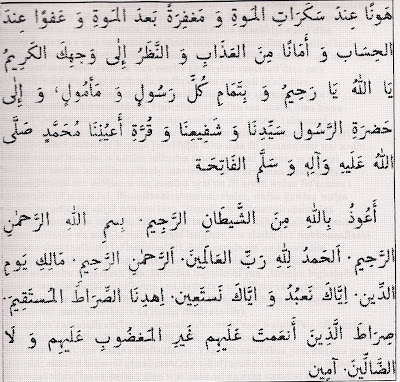 هَونًا عِندَ سَكَرَاتِ المَوةِ وَ مَغفِرَةً بَعدَ المَوةِ وَ عَفوًا عِندَ
الحِسَاب وَ أَمَانًا مِنَ العَذَابِ وَ النَّظَرُ إِلٰى وَجهِكَ الكَرِيمُ
يَا اللهُ يَا رَحِيمُ وَ بِتَمَامِ كُلَّ رَسُولٍ وَ مَأمُولٍ، وَ إِلٰى
حَضرَةِ الرَّسُول سَيِّدِنَا وَ شَفِيعِنَا وَ قُرَّةِ أَعيُنِنَا مُحَمَّدٍ صَلَّى
اللهُ عَلَيهِ وَ آلِهِ وَ سَلَّم الفَاتِحَة
أَعُوذُ بِاللهِ مِنَ الشَّيطَانِ الرَّجِيمِ. بِسمِ اللهِ الرَّحمٰنِ
الرَّحِيمِ. اَلحَمدُ لِلهِ رَبِّ العَالَمِينَ. اَلرَّحمٰنِ الرَّحِيمِ. مَالِكِ يَومِ
الدِّينِ. اِيَّاكَ نَعبُدُ وَ اِيَّاكَ نَستَعِين. اِهدِنَا الصِّرَاطَ المُستَقِيمَ.
صِرَاطَ الَّذِينَ أَنعَمتَ عَلَيهِم غَيرِ المَغضُوبِ عَلَيهِم وَ لَا
الضَّالِّينَ. آمِين